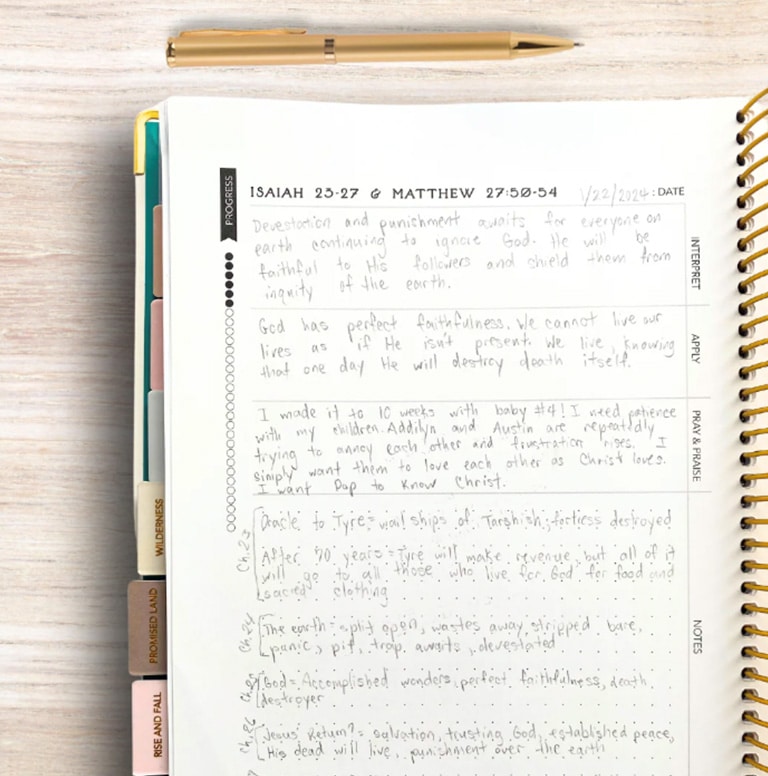 PROGRESS
ISAIAH 23-27 & MATTHEW 27:50-54 1/22/2024 : DATE
Devestation and punishment awaits for everyone on
earth continuing to ignore God. He will be
faithful to His followers and shield them from
inquity of the earth.
INTERPRET
God has perfect faithfulness. We cannot live our
lives as if He isn't present. We live, knowing
that one day He will destroy death itself.
APPLY
I made it to 10 weeks with baby #4! I need patience
with my children. Addilyn and Austin are repeatedly
trying to annoy each other and frustration rises. I
simply want them to love each other as Christ loves.
I want Pap to know Christ.
PRAY & PRAISE
Ch. 23
Oracle to Tyre = wail ships of Tarshish, fortress destroyed
After 70 years = Tyre will make revenue, but all of it
will go to all those who live for God for food and
sacred clothing
Ch. 24
The earth = split open, wastes away, stripped bare,
panic, pit, trap awaits, devestated
Ch. 25
God = Accomplished wonders, perfect faithfulness, death
destroyer
Ch. 26
Jesus' Return? = salvation, trusting God, established peace,
His dead will live, punishment over the earth
NOTES
WILDERNESS
PROMISED LAND
RISE AND FALL